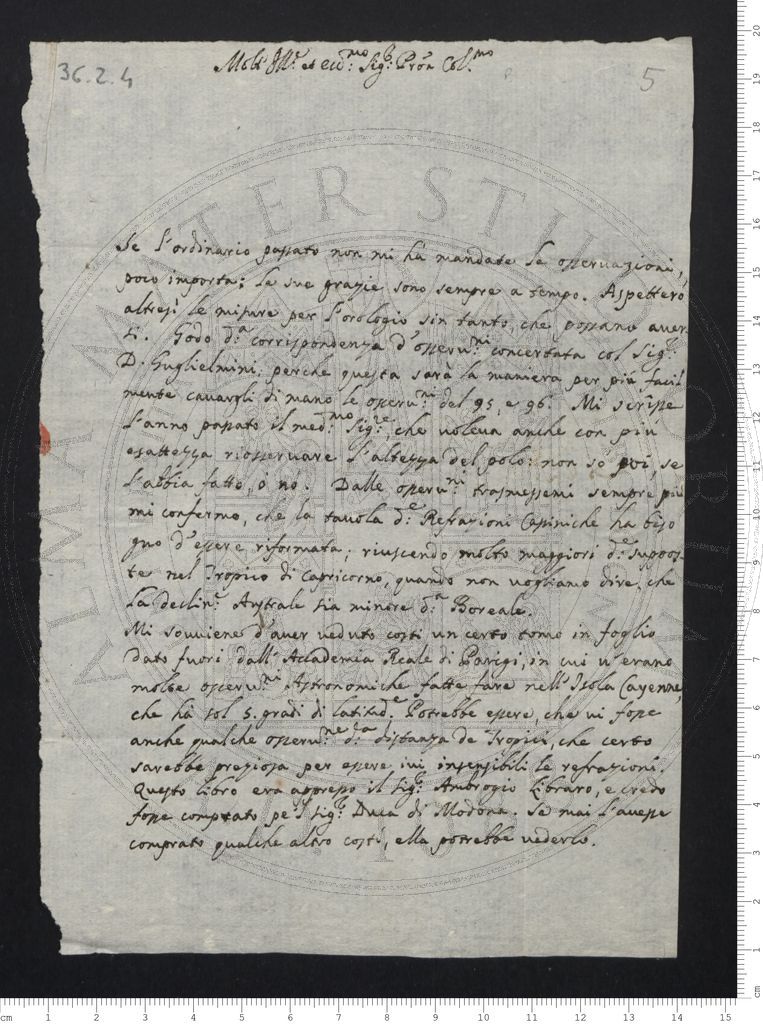 36.2.4
Molt' Ill.e et ecc.mo Sig.r Pron Col.mo
5
Se l'ordinario passato non mi ha mandate le osservazioni,
poco importa; le sue grazie sono sempre a tempo. Aspetterò
altresì le misure per l'orologio sin tanto, che possano aver
si. Godo d.a corrispondenza d'osserv.ni concertata col Sig.r
D. Guglielmini, perche questa sarà la maniera per più facil
mente cavargli di mano le osserv.ni del 95, e 96. Mi scrisse
l'anno passato il med.mo Sig.re, che voleva anche con più
esattezza riosservare l'altezza del polo: non so poi, se
l'abbia fatto, ò no. Dalle osserv.ni trasmessemi sempre più
mi confermo, che la tavola d.e Refrazioni Cassiniche ha biso
gno d'essere riformata; riuscendo molto maggiori d.e suppos
te nel Tropico di Capricorno, quando non vogliamo dire, che
la declin.e Australe sia minore d.a Boreale.
Mi sovviene d'aver veduto costì un certo tomo in foglio
dato fuori dall'Accademia Reale di Parigi, in cui v'erano
molte osserv.ni Astronomiche fatte fare nell'Isola Cayenne,
che hà sol 5. gradi di latitud.e Potrebbe essere, che vi fosse
anche qualche osserv.ne d.a distanza de Tropici, che certo
sarebbe preziosa per essere ivi insensibili le refrazioni.
Questo libro era appresso il Sig.r Ambrogio Libraro, e credo
fosse comprato pe'l Sig.r Duca di Modona. Se mai l'avesse
comprato qualche altro costì, ella potrebbe vederlo.
ALMA MATER STUDIORUM